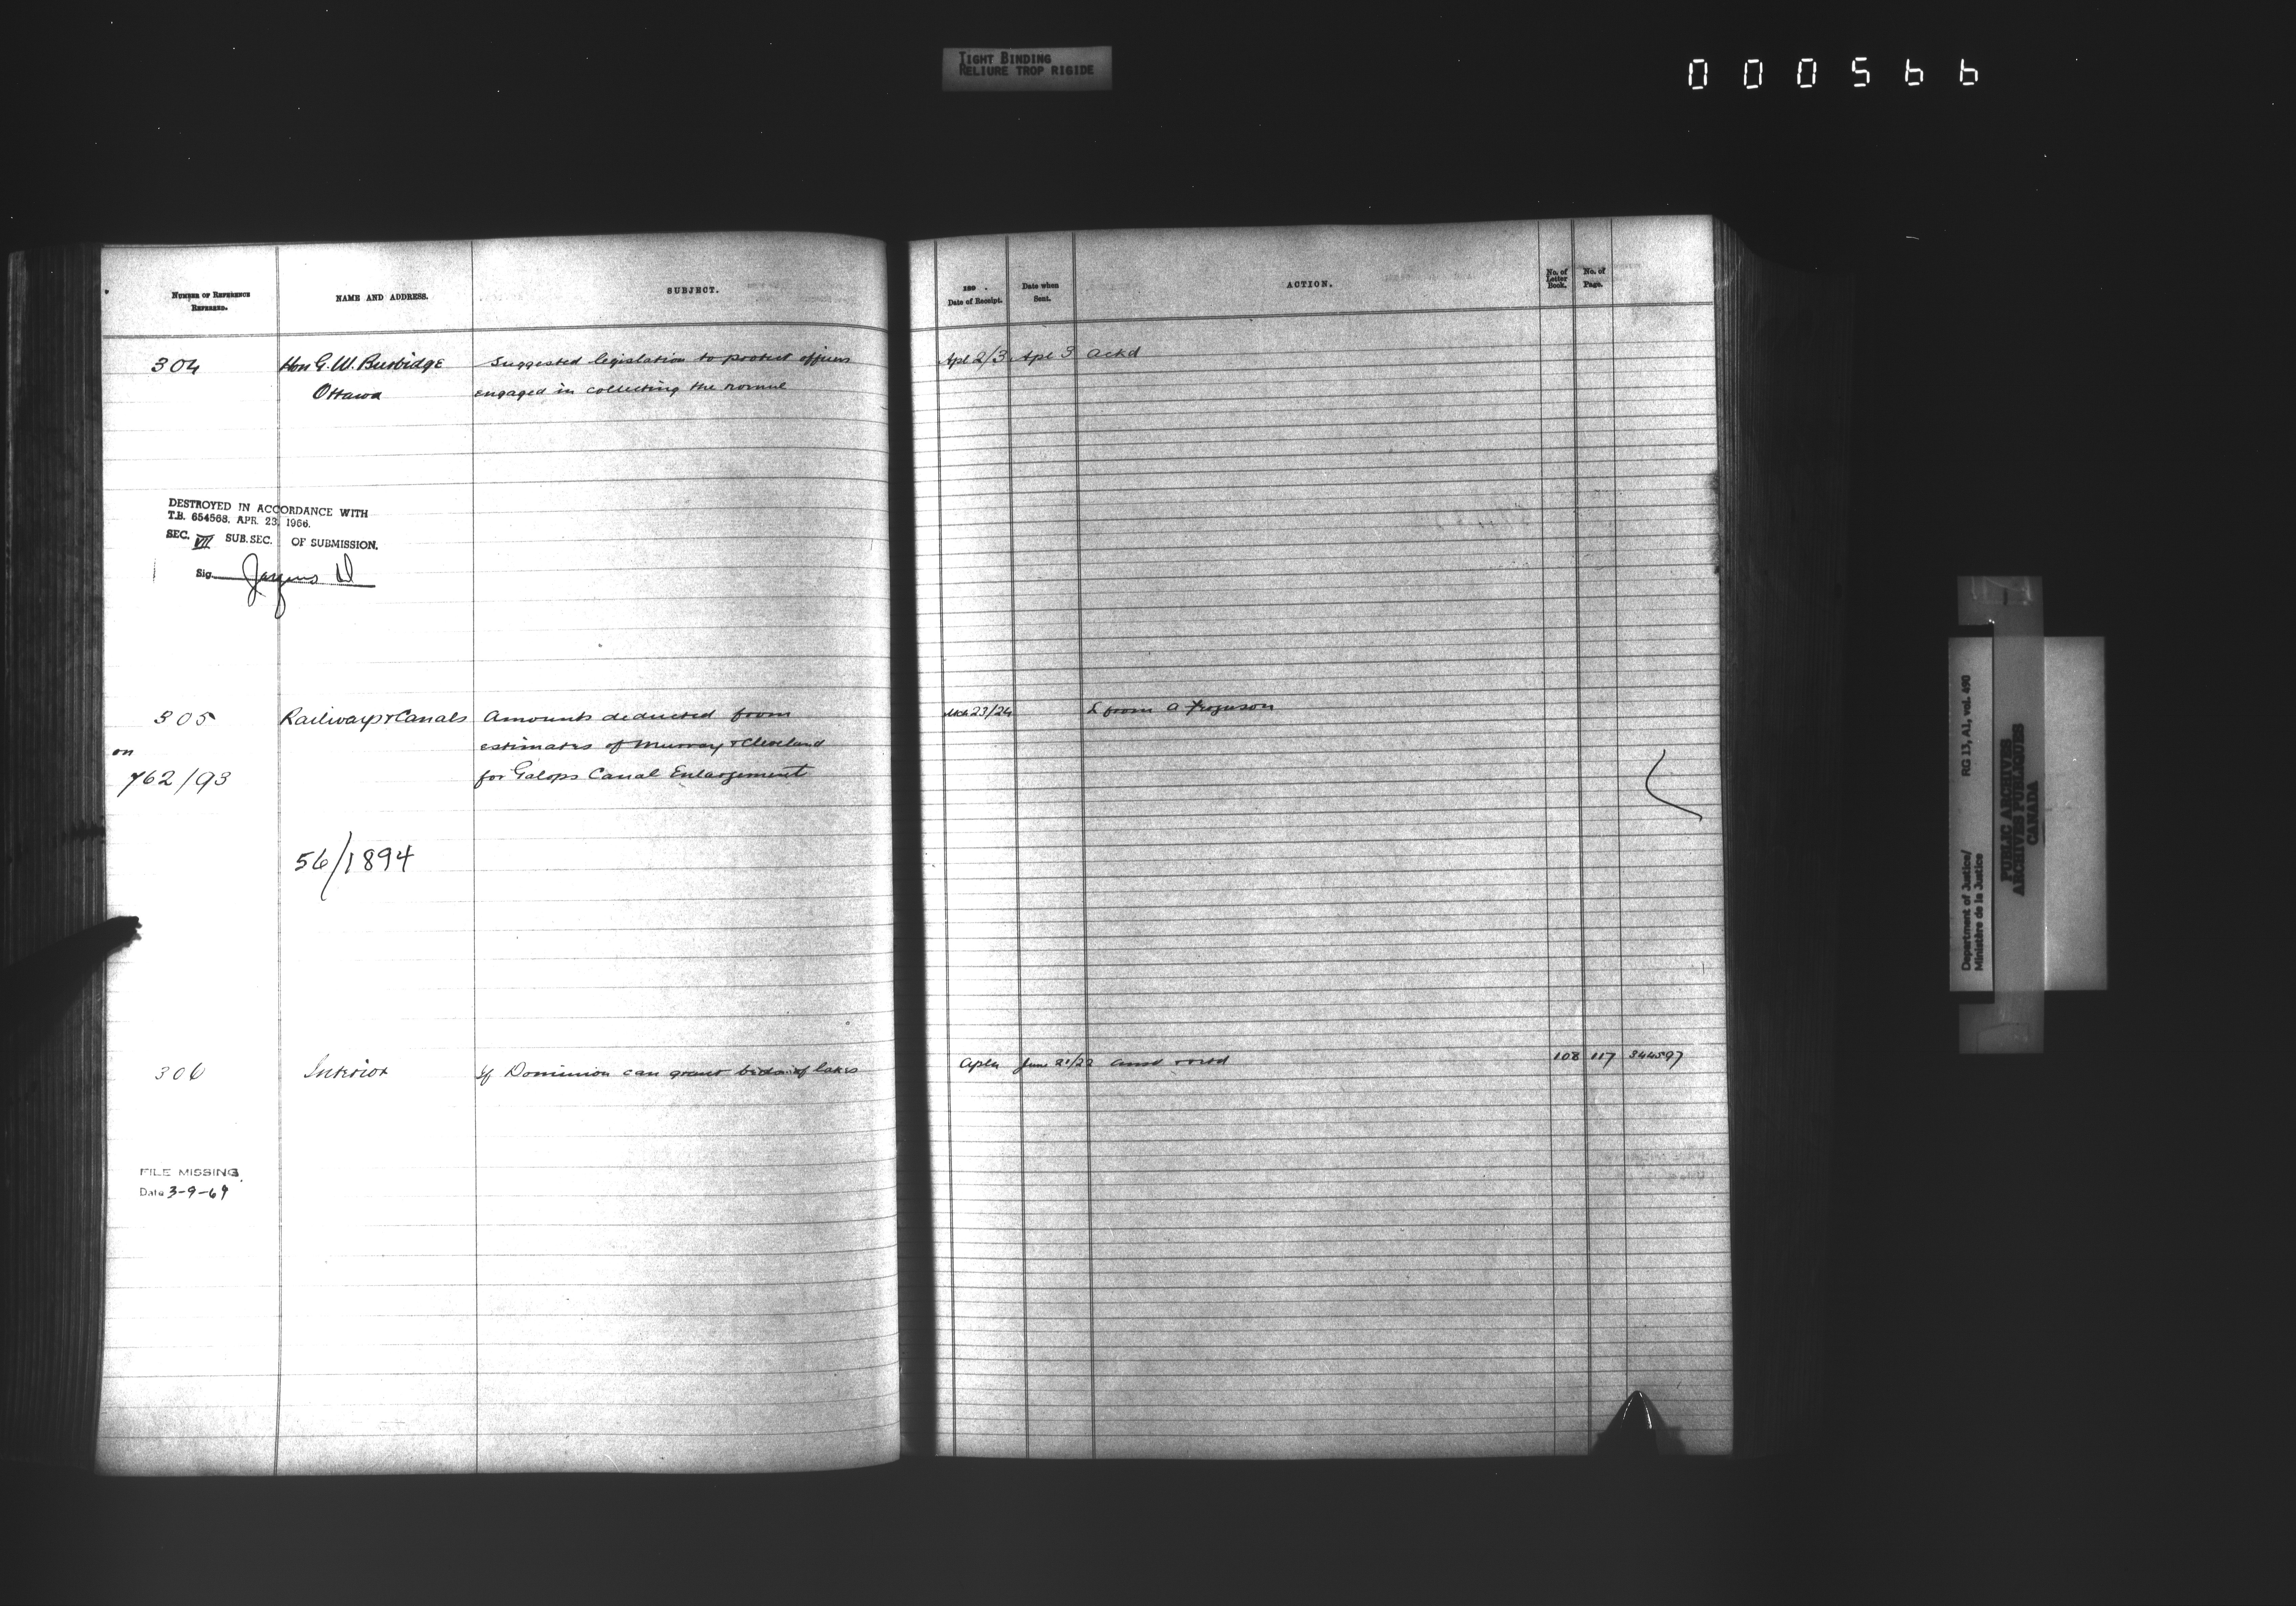 TIGHT BINDING
RELIURE TROP RIGIDE
000566
NUMBER OF REFERENCE
REFERRED.
NAME AND ADDRESS.
SUBJECT.
189 .
Date of Receipt.
Date when
Sent.
ACTION.
No. of
Letter
Book.
No. of
Page.
304
Hon G. W. Burbidge
Ottawa
Suggested legislation to protect officers
engaged in collecting the revenue
Apl 2/3 Apl 3 ackd
DESTROYED IN ACCORDANCE WITH
T.B. 654568. APR. 23, 1966.
SEC. VII SUB.SEC. OF SUBMISSION.
Sig.
305 Railways & Canals Amounts deducted from
on
estimates of Murray & Cleveland
762/93 for Galops Canal Enlargement
Mch 23/24 L from A Ferguson
56/1894
306 Interior If Dominion can grant beds of lakes
June 21/22 108 117 344597
FILE MISSING
Date 3-9-69
Department of Justice/
Ministère de la Justice
RG 13, A1, vol. 490
PUBLIC ARCHIVES
ARCHIVES PUBLIQUES
CANADA